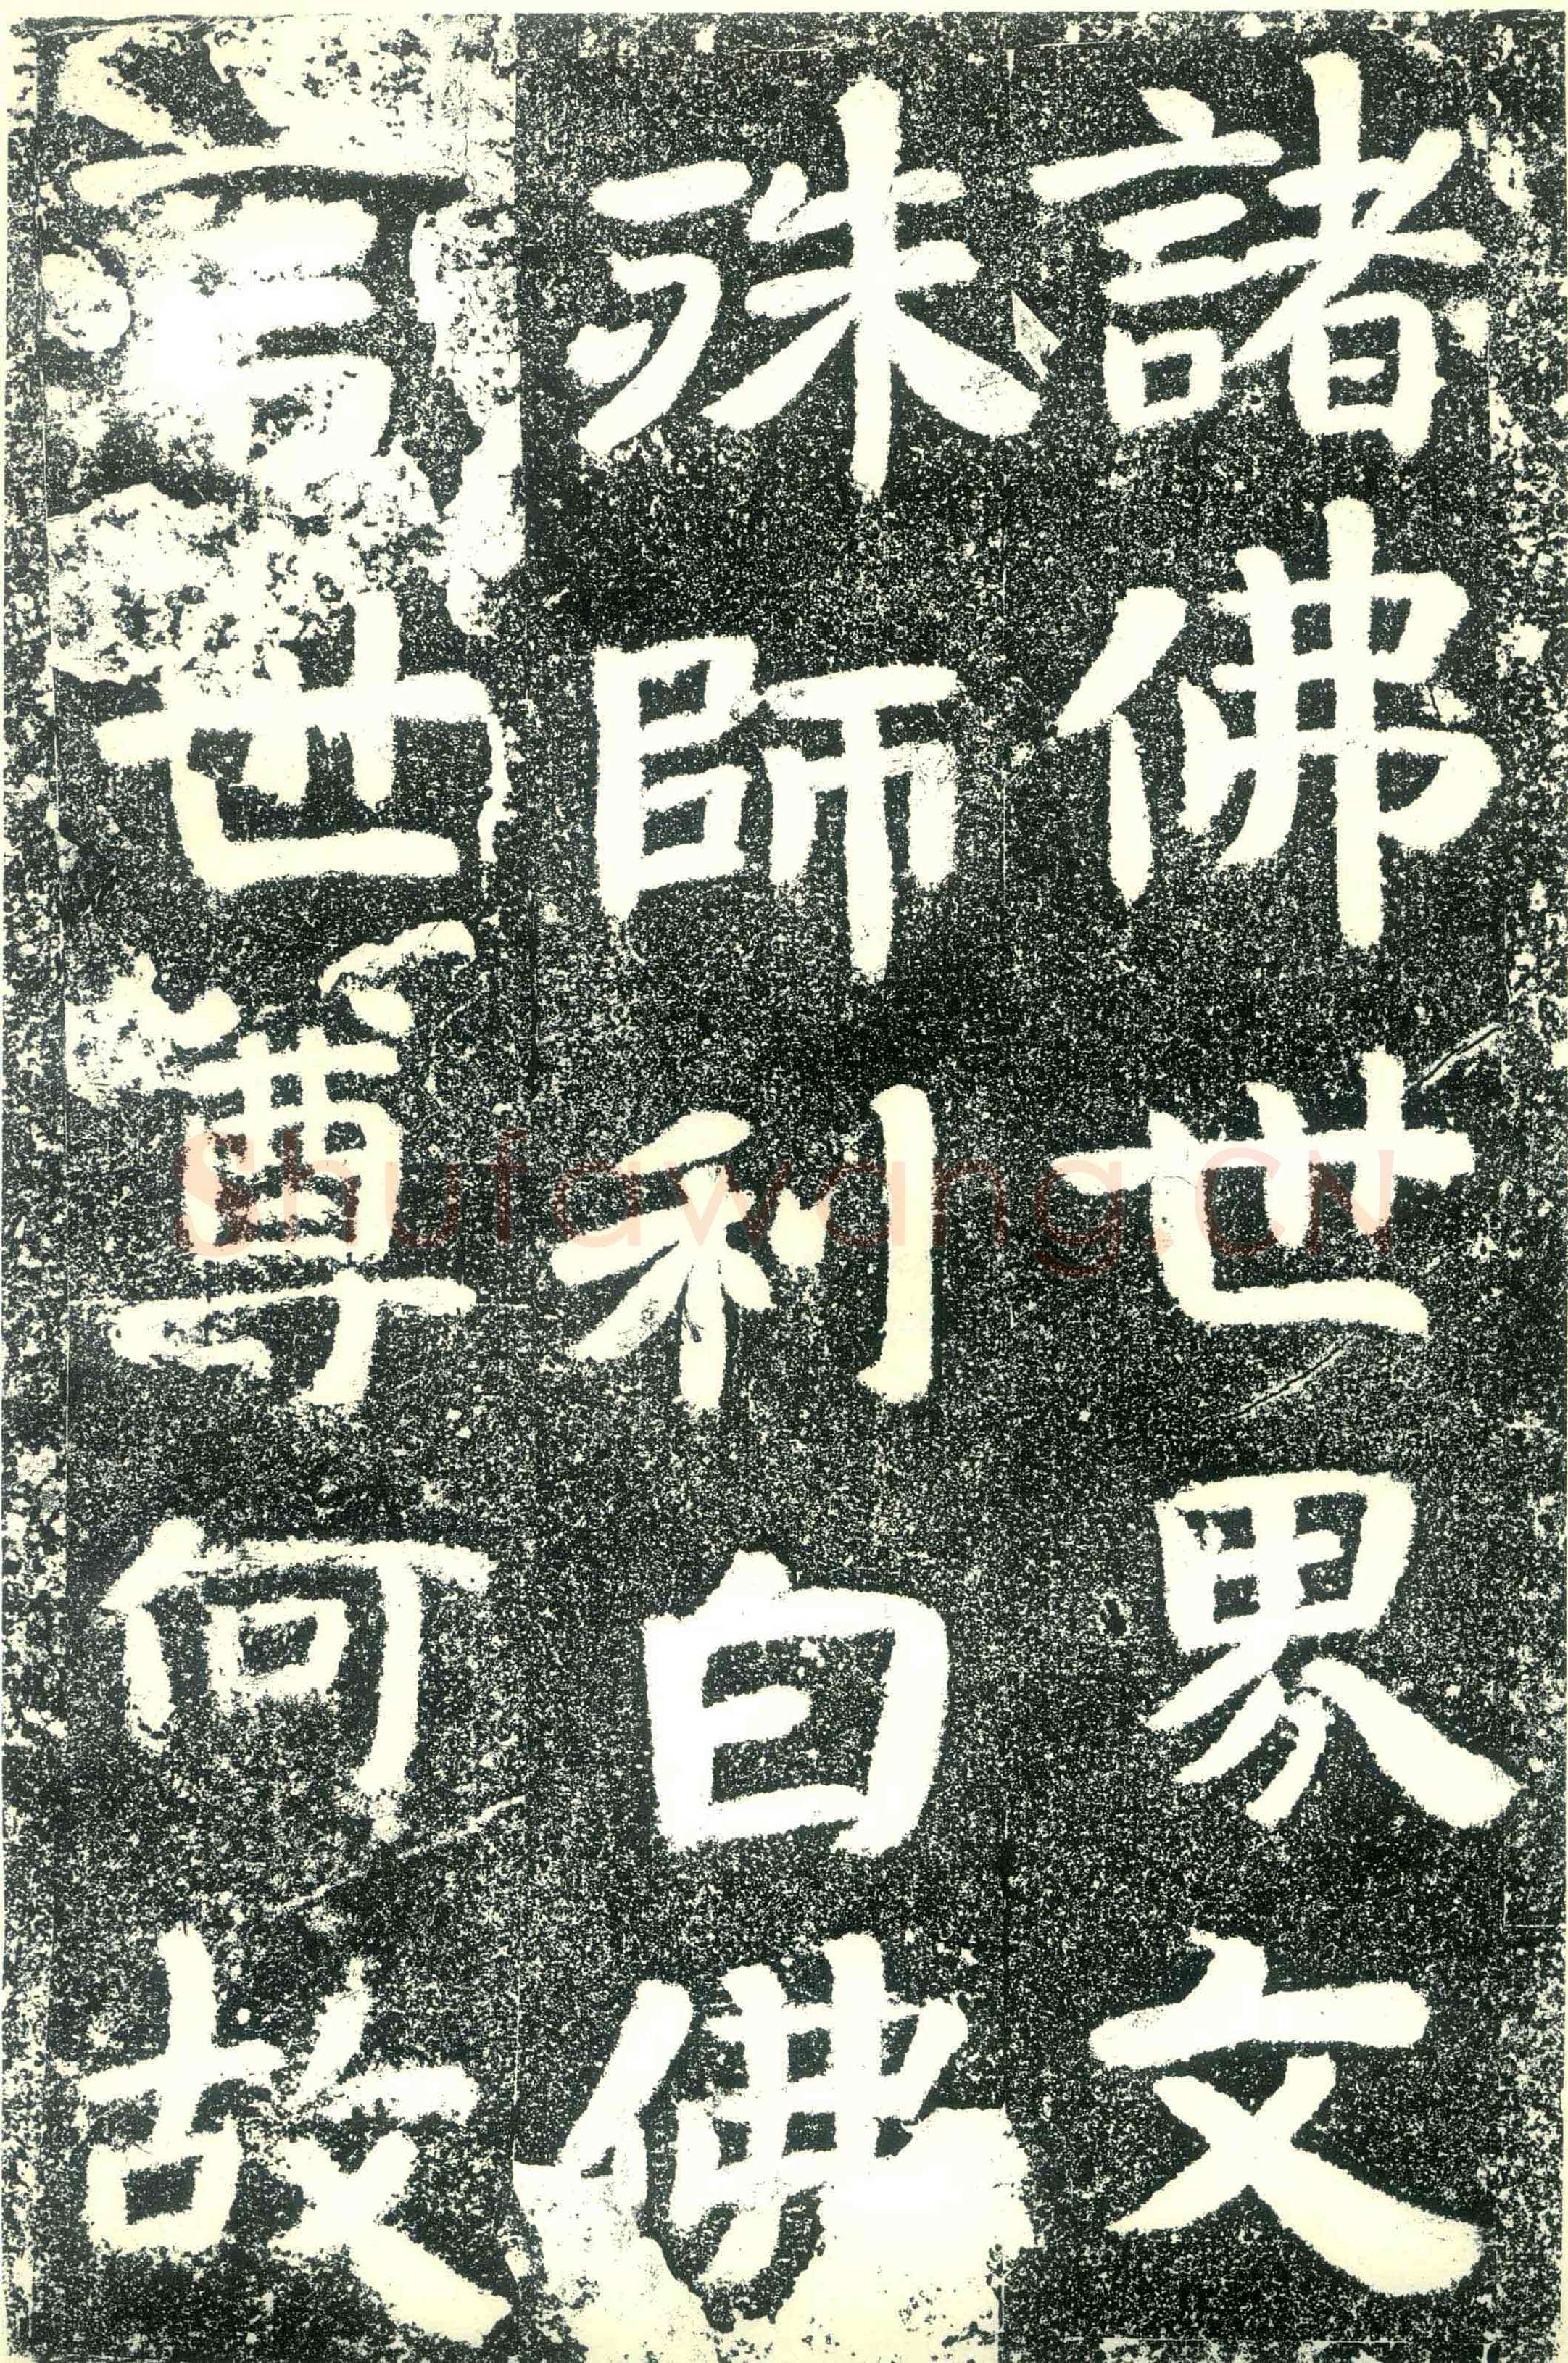 諸佛世界文
殊師利白佛
言世尊何故
Shufawang.CN